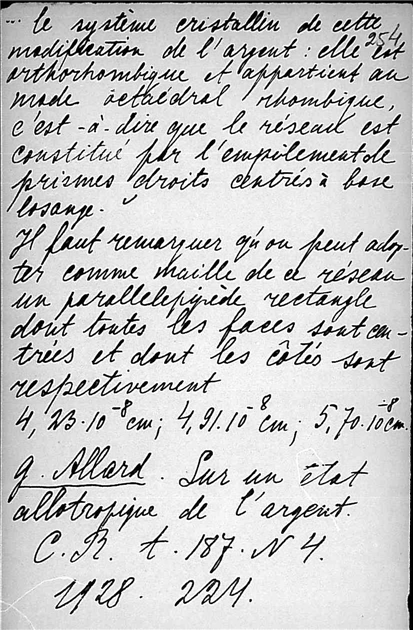 ... le système cristallin de cette
254
modification de l'argent: elle est
orthorhombique et appartient au
mode octaédral rhombique,
c'est-à-dire que le réseau est
constitué par l'empilement de
prismes droits centrés à base
losange.
Il faut remarquer qu'on peut adop-
ter comme maille de ce réseau
un parallelepipède rectangle
dont toutes les faces sont cen-
trées et dont les côtés sont
respectivement
4,23·10⁻⁸cm; 4,91·10⁻⁸cm; 5,70·10⁻⁸cm.
G. Allard. Sur un état
allotropique de l'argent.
C. R. t. 187. N 4.
1928. 224.